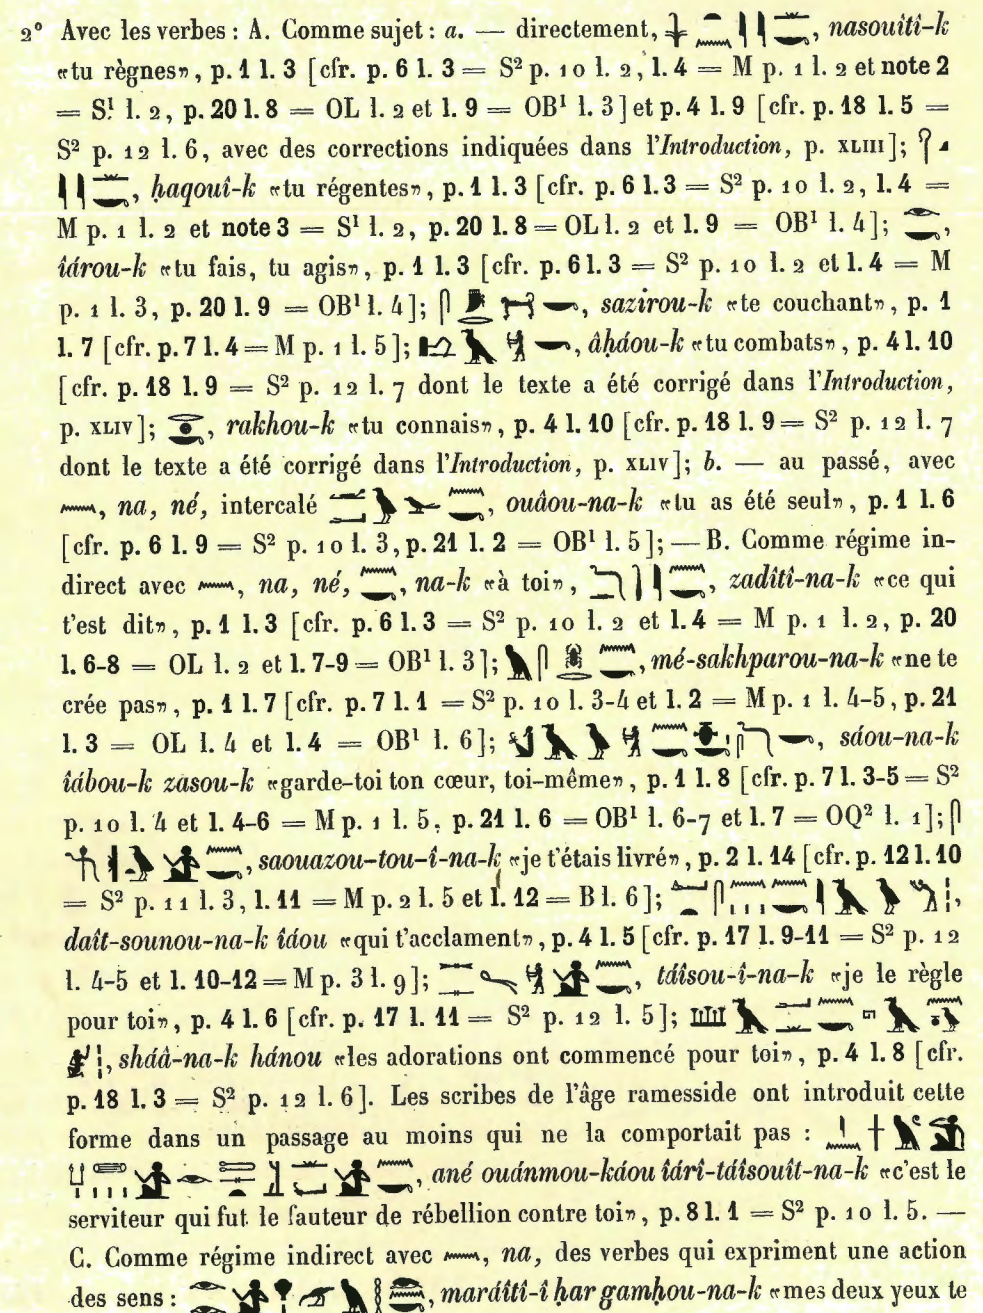 2° Avec les verbes : A. Comme sujet : a. — directement, , nasouîtî-k
«tu règnes», p. 1 l. 3 [cfr. p. 6 l. 3 = S² p. 10 l. 2, l. 4 = M p. 1 l. 2 et note 2
= S¹ l. 2, p. 20 l. 8 = OL l. 2 et l. 9 = OB¹ l. 3] et p. 4 l. 9 [cfr. p. 18 l. 5 =
S² p. 12 l. 6, avec des corrections indiquées dans l'Introduction, p. XLIII];
, ḥaqouî-k «tu régentes», p. 1 l. 3 [cfr. p. 6 l. 3 = S² p. 10 l. 2, l. 4 =
M p. 1 l. 2 et note 3 = S¹ l. 2, p. 20 l. 8 = OL l. 2 et l. 9 = OB¹ l. 4]; ,
îárou-k «tu fais, tu agis», p. 1 l. 3 [cfr. p. 6 l. 3 = S² p. 10 l. 2 et l. 4 = M
p. 1 l. 3, p. 20 l. 9 = OB¹ l. 4]; , sazirou-k «te couchant», p. 1
l. 7 [cfr. p. 7 l. 4 = M p. 1 l. 5]; , âḥáou-k «tu combats», p. 4 l. 10
[cfr. p. 18 l. 9 = S² p. 12 l. 7 dont le texte a été corrigé dans l'Introduction,
p. XLIV]; , rakhou-k «tu connais», p. 4 l. 10 [cfr. p. 18 l. 9 = S² p. 12 l. 7
dont le texte a été corrigé dans l'Introduction, p. XLIV]; b. — au passé, avec
, na, né, intercalé , ouâou-na-k «tu as été seul», p. 1 l. 6
[cfr. p. 6 l. 9 = S² p. 10 l. 3, p. 21 l. 2 = OB¹ l. 5]; — B. Comme régime in-
direct avec , na, né, , na-k «à toi», , zadîtî-na-k «ce qui
t'est dit», p. 1 l. 3 [cfr. p. 6 l. 3 = S² p. 10 l. 2 et l. 4 = M p. 1 l. 2, p. 20
l. 6-8 = OL l. 2 et l. 7-9 = OB¹ l. 3]; , mé-sakhparou-na-k «ne te
crée pas», p. 1 l. 7 [cfr. p. 7 l. 1 = S² p. 10 l. 3-4 et l. 2 = M p. 1 l. 4-5, p. 21
l. 3 = OL l. 4 et l. 4 = OB¹ l. 6]; , sáou-na-k
îábou-k zasou-k «garde-toi ton cœur, toi-même», p. 1 l. 8 [cfr. p. 7 l. 3-5 = S²
p. 10 l. 4 et l. 4-6 = M p. 1 l. 5, p. 21 l. 6 = OB¹ l. 6-7 et l. 7 = OQ² l. 1];
, saouazou-tou-î-na-k «je t'étais livré», p. 2 l. 14 [cfr. p. 12 l. 10
= S² p. 11 l. 3, l. 11 = M p. 2 l. 5 et l. 12 = B l. 6]; ,
daît-sounou-na-k îáou «qui t'acclament», p. 4 l. 5 [cfr. p. 17 l. 9-11 = S² p. 12
l. 4-5 et l. 10-12 = M p. 3 l. 9]; , táîsou-î-na-k «je le règle
pour toi», p. 4 l. 6 [cfr. p. 17 l. 11 = S² p. 12 l. 5];
, sháâ-na-k hánou «les adorations ont commencé pour toi», p. 4 l. 8 [cfr.
p. 18 l. 3 = S² p. 12 l. 6]. Les scribes de l'âge ramesside ont introduit cette
forme dans un passage au moins qui ne la comportait pas :
, ané ouánmou-káou îárî-táîsouît-na-k «c'est le
serviteur qui fut le fauteur de rébellion contre toi», p. 8 l. 1 = S² p. 10 l. 5. —
C. Comme régime indirect avec , na, des verbes qui expriment une action
des sens : , maráîtî-î ḥar gamḥou-na-k «mes deux yeux te